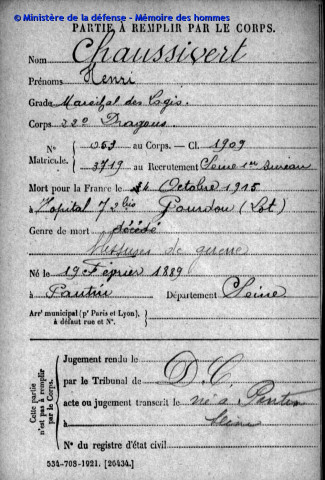 © Ministère de la défense - Mémoire des hommes
PARTIE À REMPLIR PAR LE CORPS.
Nom Chaussivert
Prénoms Henri
Grade Marechal des Logis
Corps 22e Dragons
N° 053 au Corps. — Cl. 1909
Matricule. 3719 au Recrutement Seine 1er Bureau
Mort pour la France le 14 Octobre 1915
à Hopital 72bis Gourdon (Lot)
Genre de mort décédé
blessures de guerre
Né le 19 Février 1889
à Pantin Département Seine
Arrt municipal (pr Paris et Lyon), à défaut rue et N°.
Cette partie n'est pas à remplir par le Corps.
Jugement rendu le
par le Tribunal de D. C.
acte ou jugement transcrit le né à Pantin
Seine
N° du registre d'état civil
534-708-1921. [26434.]